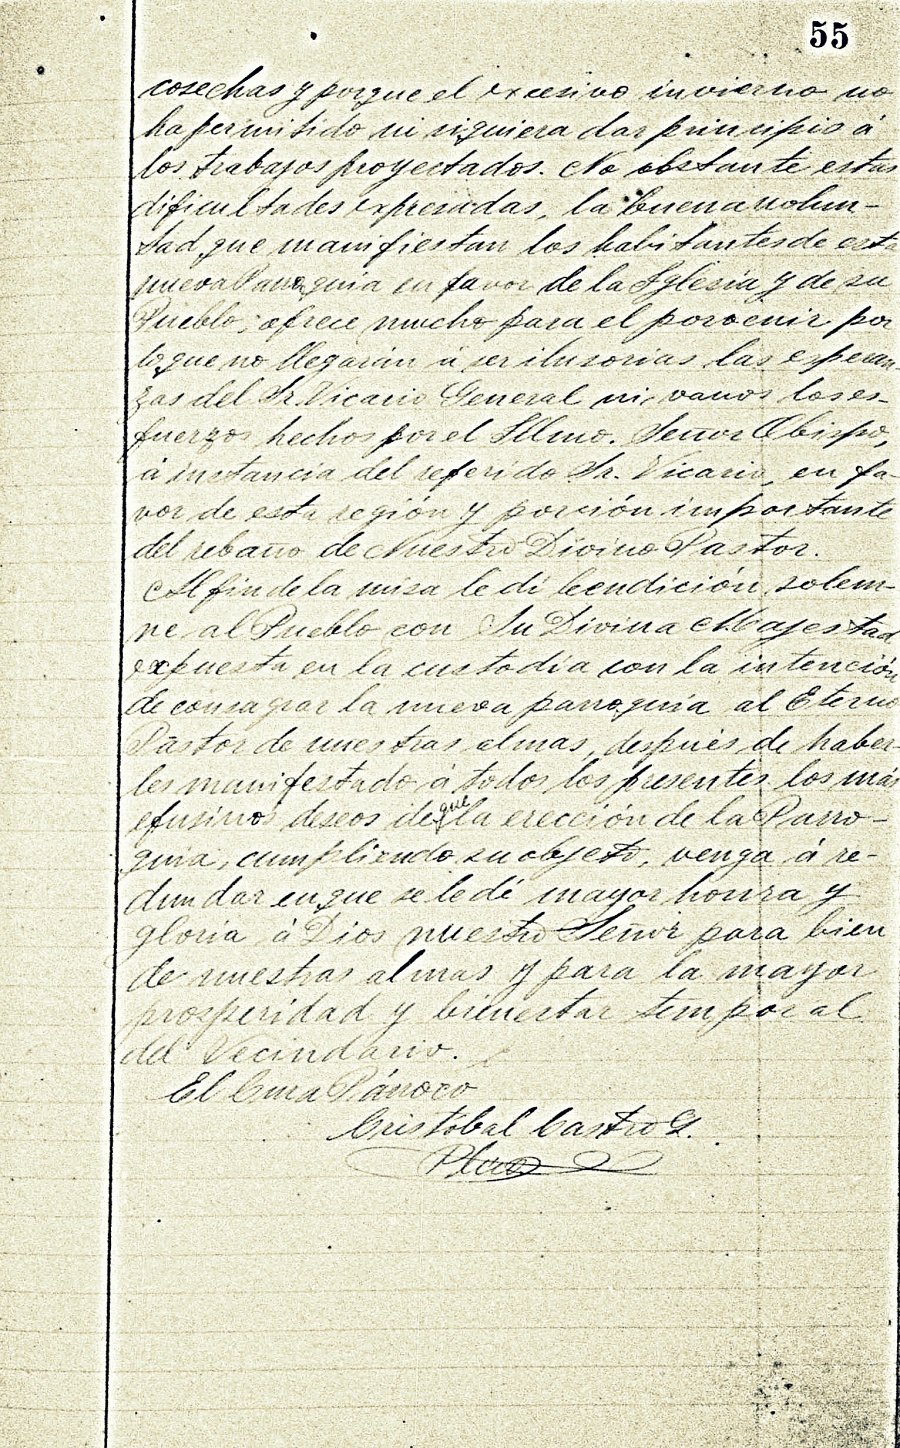 55
cosechas y porque el excesivo invierno no
ha permitido ni siquiera dar principio á
los trabajos proyectados. No obstante estas
dificultades expresadas, la buena volun-
tad, que manifiestan los habitantes de esta
nueva Parroquia en favor de la Iglesia y de su
Pueblo, ofrece mucho para el porvenir por
lo que no llegarán á ser ilusorias las esperan-
zas del Sr. Vicario General ni vanos los es-
fuerzos hechos por el Illmo. Señor Obispo,
á instancia del referido Sr. Vicario, en fa-
vor de esta región y porción importante
del rebaño de Nuestro Divino Pastor.
Al fin de la misa le dí bendición solem-
ne al Pueblo con Su Divina Majestad
expuesta en la custodia con la intención
de consagrar la nueva parroquia al Eterno
Pastor de nuestras almas, después de haber-
les manifestado á todos los presentes los más
efusivos deseos de que la erección de la Parro-
quia, cumpliendo su objeto, venga á re-
dundar en que se le dé mayor honra y
gloria á Dios nuestro Señor para bien
de nuestras almas y para la mayor
prosperidad y bienestar temporal
del Vecindario.
El Cura Párroco
Cristóbal Castro G.
Pbro.